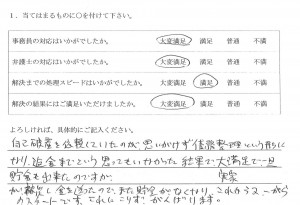 1、当てはまるものに○を付けて下さい。
事務員の対応はいかがでしたか。 大変満足 満足 普通 不満
弁護士の対応はいかがでしたか。 大変満足 満足 普通 不満
解決までの処理スピードはいかがでしたか。 大変満足 満足 普通 不満
解決の結果にはご満足いただけましたか。 大変満足 満足 普通 不満
よろしければ、具体的にご記入ください。
自己破産を依頼していたのが思いがけず債務整理という形に
なり、返金までという思ってもいなかった結果で大満足で一旦
貯金も出来たのですが、 実家
が 金を たので、また貯金がなくなり、これからまた一から
のスタートです。これにこりず、がんばります。